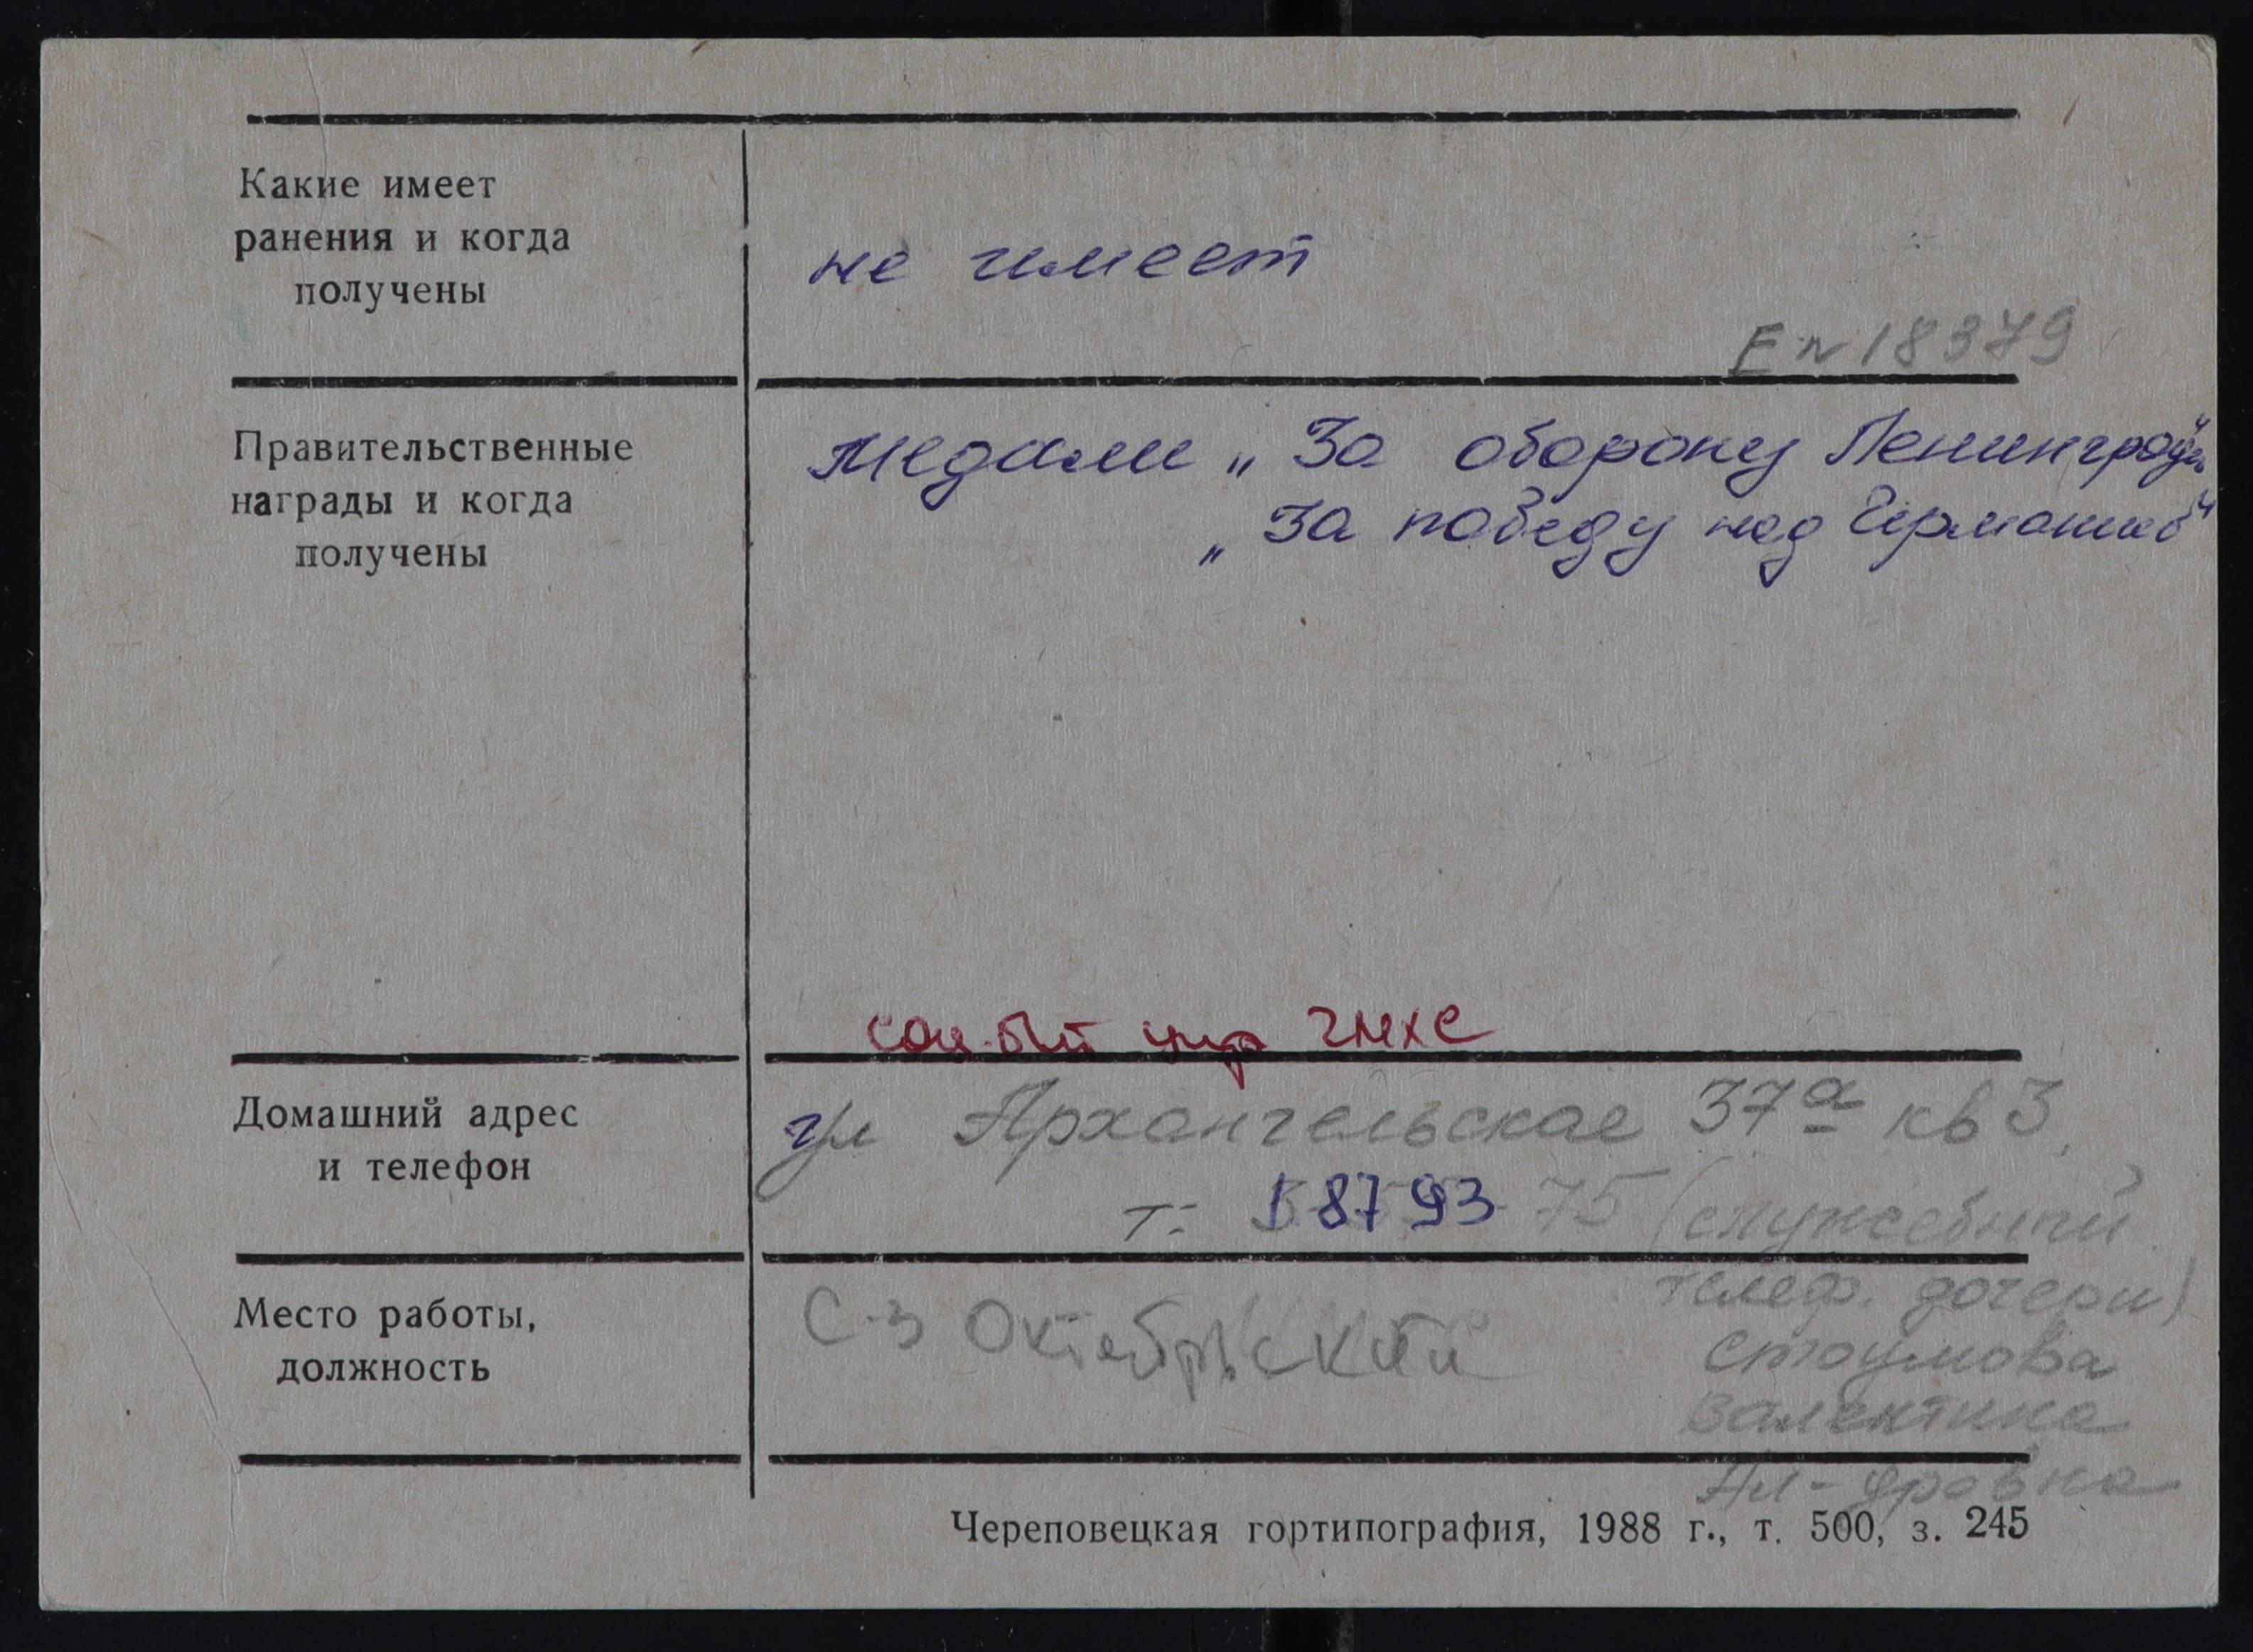 Какие имеет
ранения и когда
получены
не имеет
Е № 18379
Правительственные
награды и когда
получены
медали „За оборону Ленинграда"
„За победу над Германией"
соц-быт упр ЧМХС
Домашний адрес
и телефон
ул Архангельская 37а кв 3,
т: 58793 75 (служебный
телеф. дочери)
Стоумова
Валентина
Ал-дровна
Место работы,
должность
С-з Октябрьский
Череповецкая гортипография, 1988 г., т. 500, з. 245